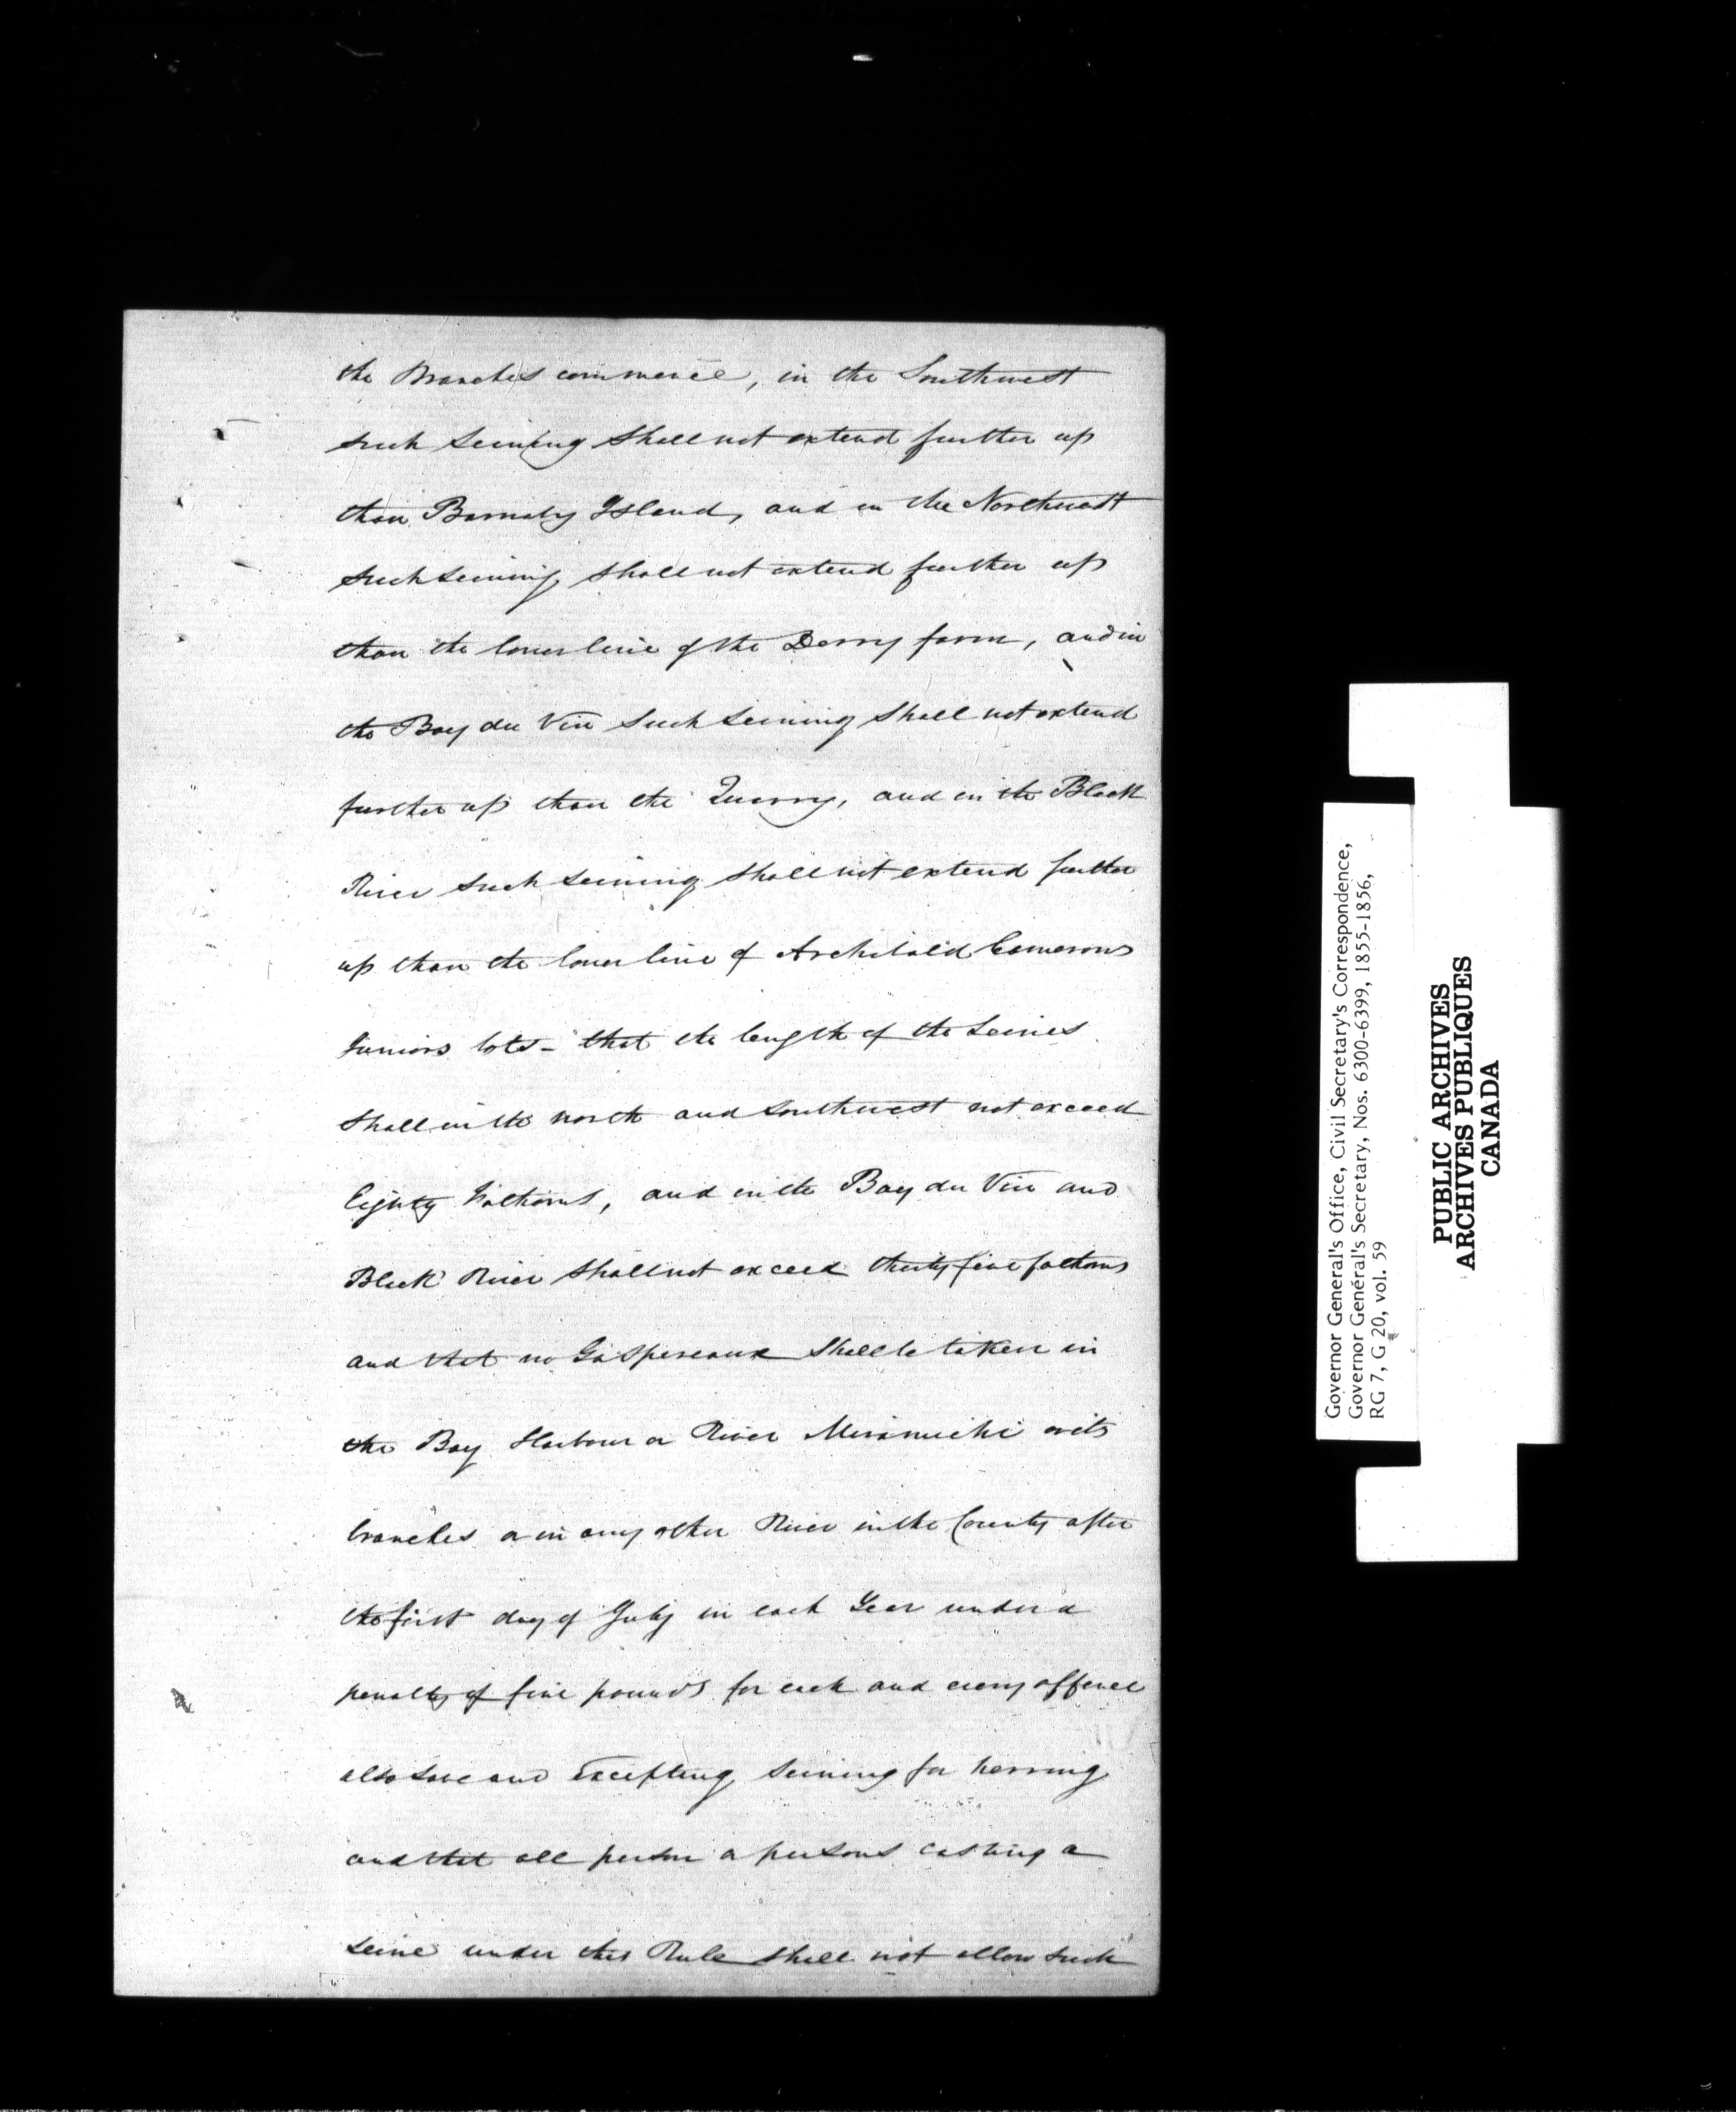 the Branches commence, in the Southwest
such seining shall not extend further up
than Barnaby Island, and in the Northwest
such seining shall not extend further up
than the lower line of the Derry farm, and in
the Bay du Vin such seining shall not extend
further up than the Quarry, and in the Black
River such seining shall not extend further
up than the lower line of Archibald Camerons
Juniors lots - that the length of the Seines
shall in the north and southwest not exceed
Eighty Fathoms, and in the Bay du Vin and
Black River shall not exceed thirty five fathoms
and that no Gaspereaux shall be taken in
the Bay Harbour or River Miramichi or its
branches or in any other River in the County after
the first day of July in each Year under a
penalty of five pounds for each and every offence
also save and Excepting seining for herring
and that all person or persons casting a
seine under this Rule shall not allow such
Governor General's Office, Civil Secretary's Correspondence,
Governor Général's Secretary, Nos. 6300-6399, 1855-1856,
RG 7, G 20, vol. 59
PUBLIC ARCHIVES
ARCHIVES PUBLIQUES
CANADA